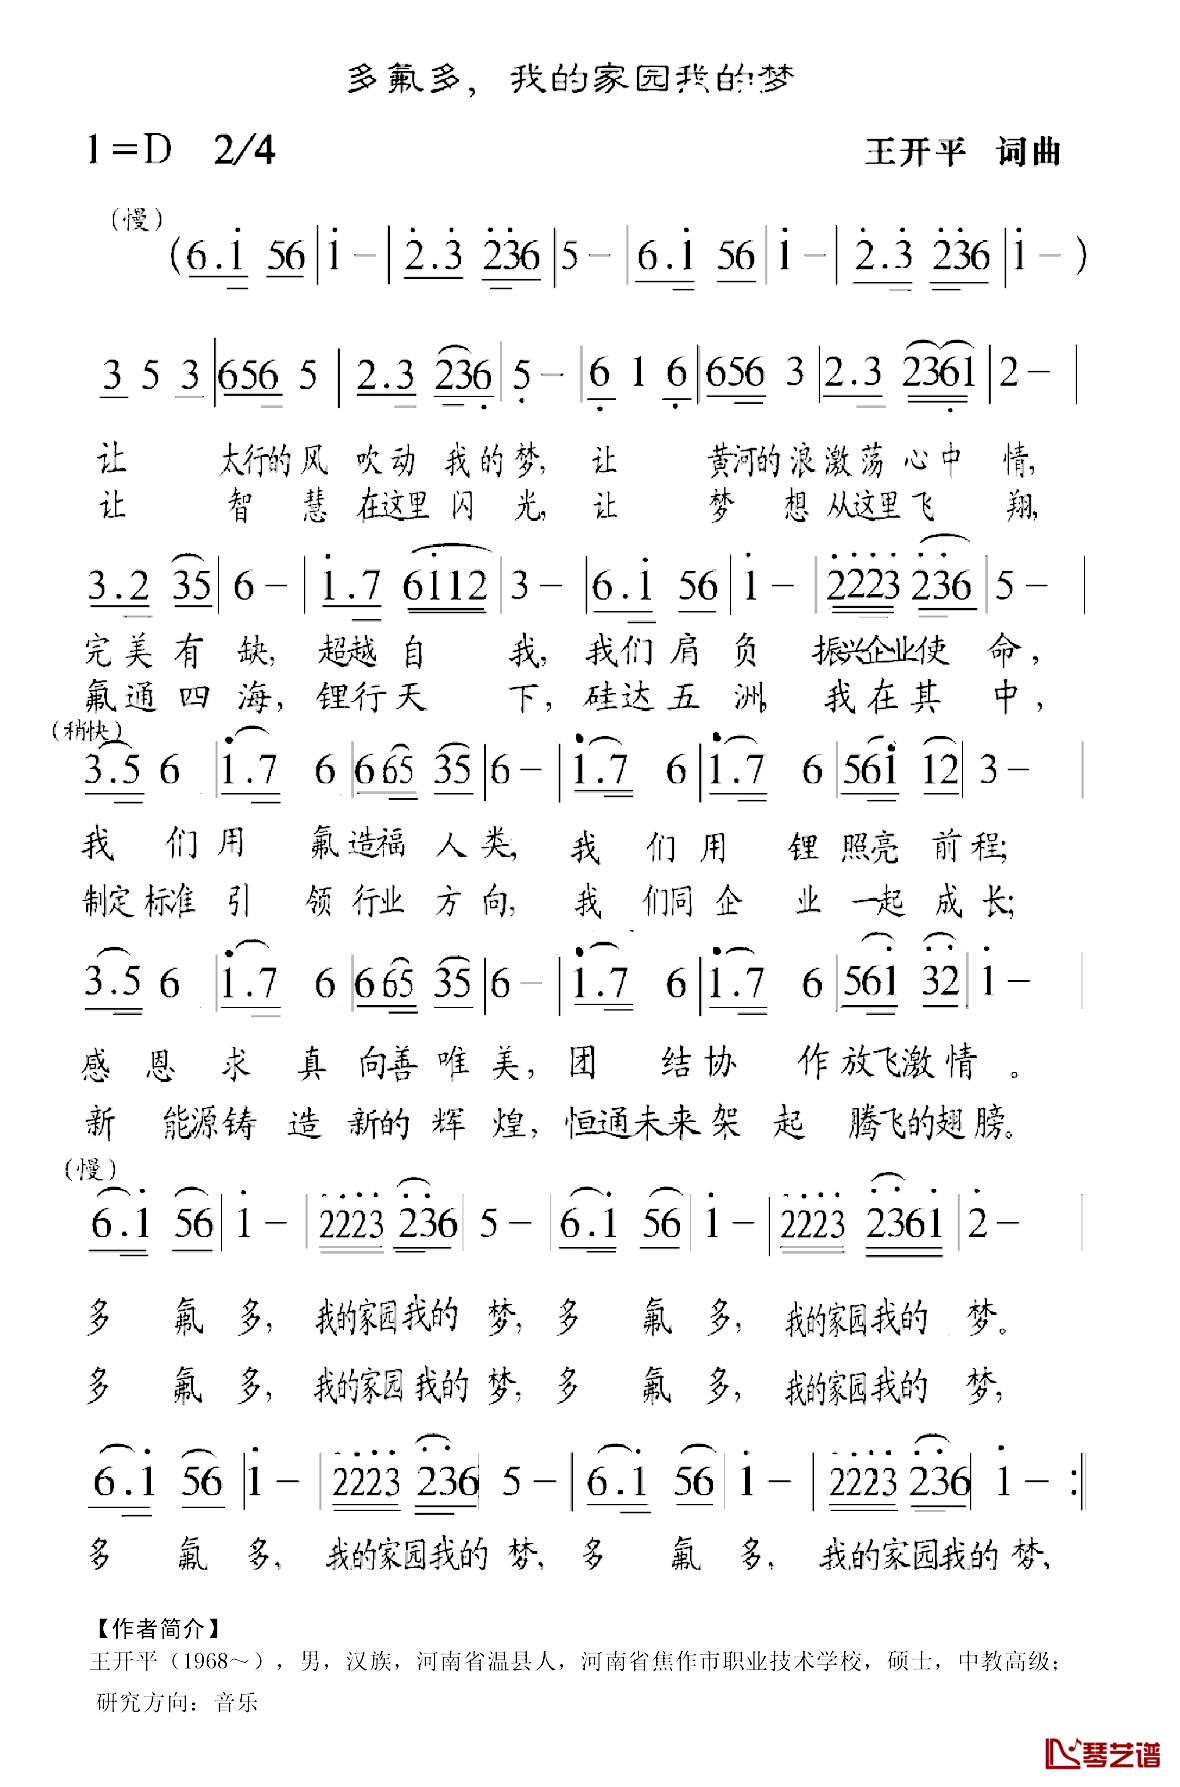 多氟多，我的家园我的梦
1=D 2/4 王开平 词曲
(慢)
(6.i 56|i -|2.3 236|5 -|6.i 56|i -|2.3 236|i -)
3 5 3|656 5|2.3 236|5 -|6 1 6|656 3|2.3 2361|2 -|
让 太行的风 吹动 我的梦，让 黄河的浪激荡心中 情，
让 智 慧在这里闪 光，让 梦 想从这里飞 翔，
3.2 35|6 -|i.7 6i12|3 -|6.i 56|i -|2223 236|5 -|
完美有缺，超越自 我，我们肩负 振兴企业使 命，
氟通四海，锂行天 下，硅达五洲，我在其 中，
(稍快)
3.5 6|i.7 6|665 35|6 -|i.7 6|i.7 6|56i 12|3 -|
我 们用 氟造福人类，我 们用 锂照亮前程；
制定标准引 领行业方向，我 们同企 业一起成长；
3.5 6|i.7 6|665 35|6 -|i.7 6|i.7 6|561 32|1 -|
感恩求真向善唯美，团 结协 作放飞激情。
新 能源铸造新的辉煌，恒通未来架起 腾飞的翅膀。
(慢)
6.i 56|i -|2223 236|5 -|6.i 56|i -|2223 2361|2 -|
多 氟 多，我的家园我的 梦，多 氟 多，我的家园我的 梦。
多 氟 多，我的家园我的 梦，多 氟 多，我的家园我的 梦，
6.i 56|i -|2223 236|5 -|6.i 56|i -|2223 236|i -:||
多 氟 多，我的家园我的 梦，多 氟 多，我的家园我的梦，
【作者简介】
王开平（1968～），男，汉族，河南省温县人，河南省焦作市职业技术学校，硕士，中教高级；
研究方向：音乐
琴艺谱